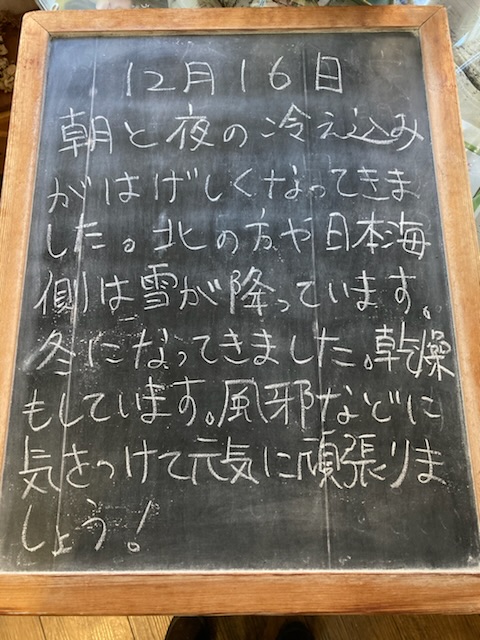 12月16日
朝と夜の冷え込み
がはげしくなってきま
した。北の方や日本海
側は雪が降っています。
冬になってきました。乾燥
もしています。風邪などに
気をつけて元気に頑張りま
しょう!